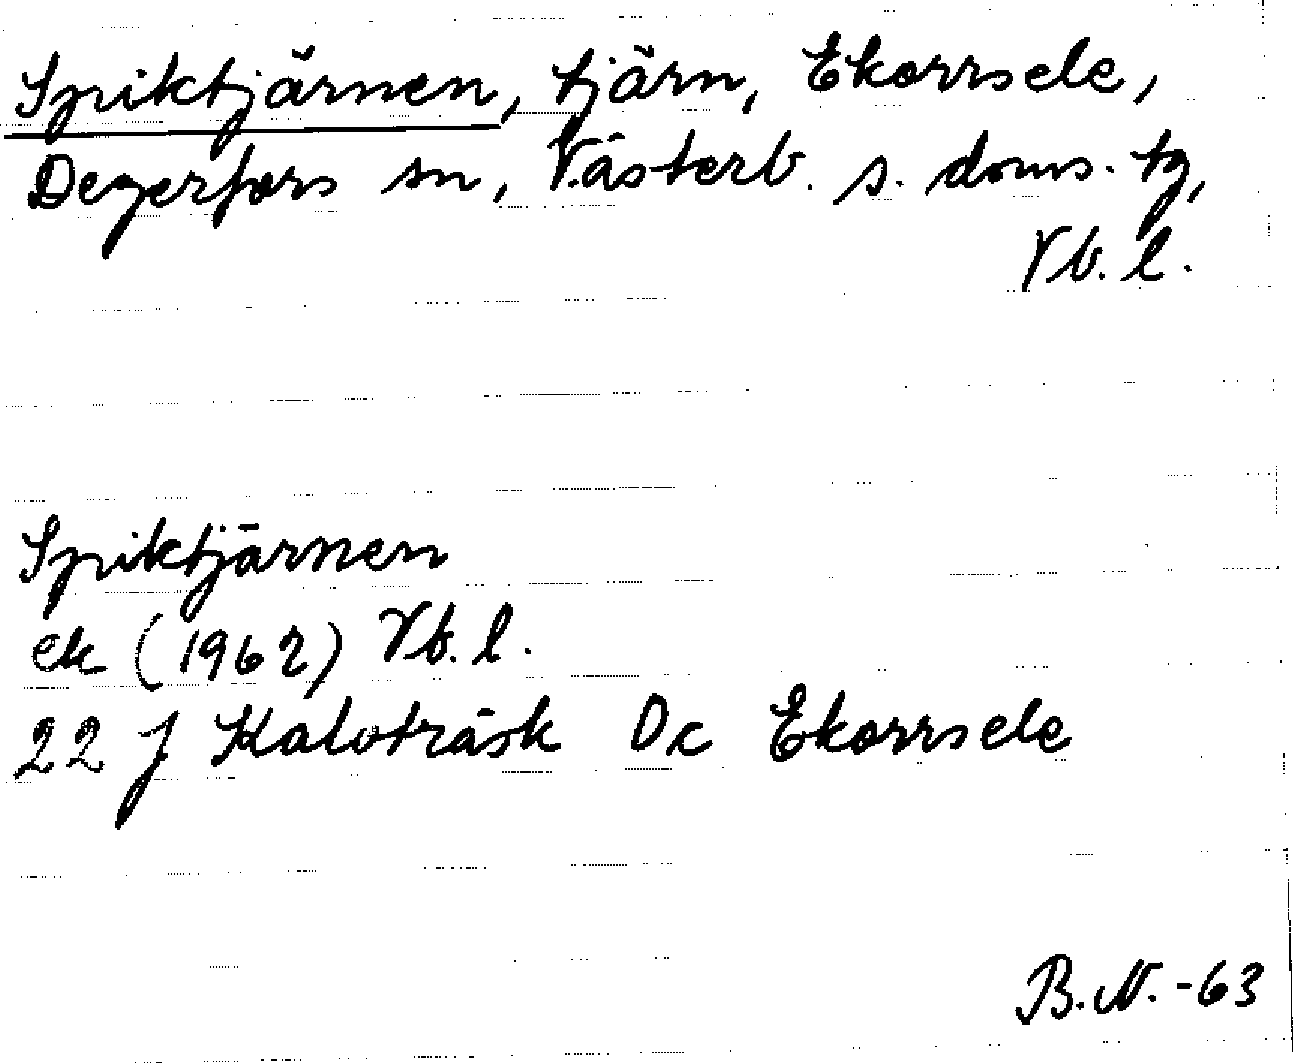 Spiktjärnen, tjärn, Ekorrsele,
Degerfors sn, Västerb. s. doms. tg,
Vb. l.
Spiktjärnen
ek (1962) Vb. l.
22 J Kalvträsk Dc Ekorrsele
B.N. -63